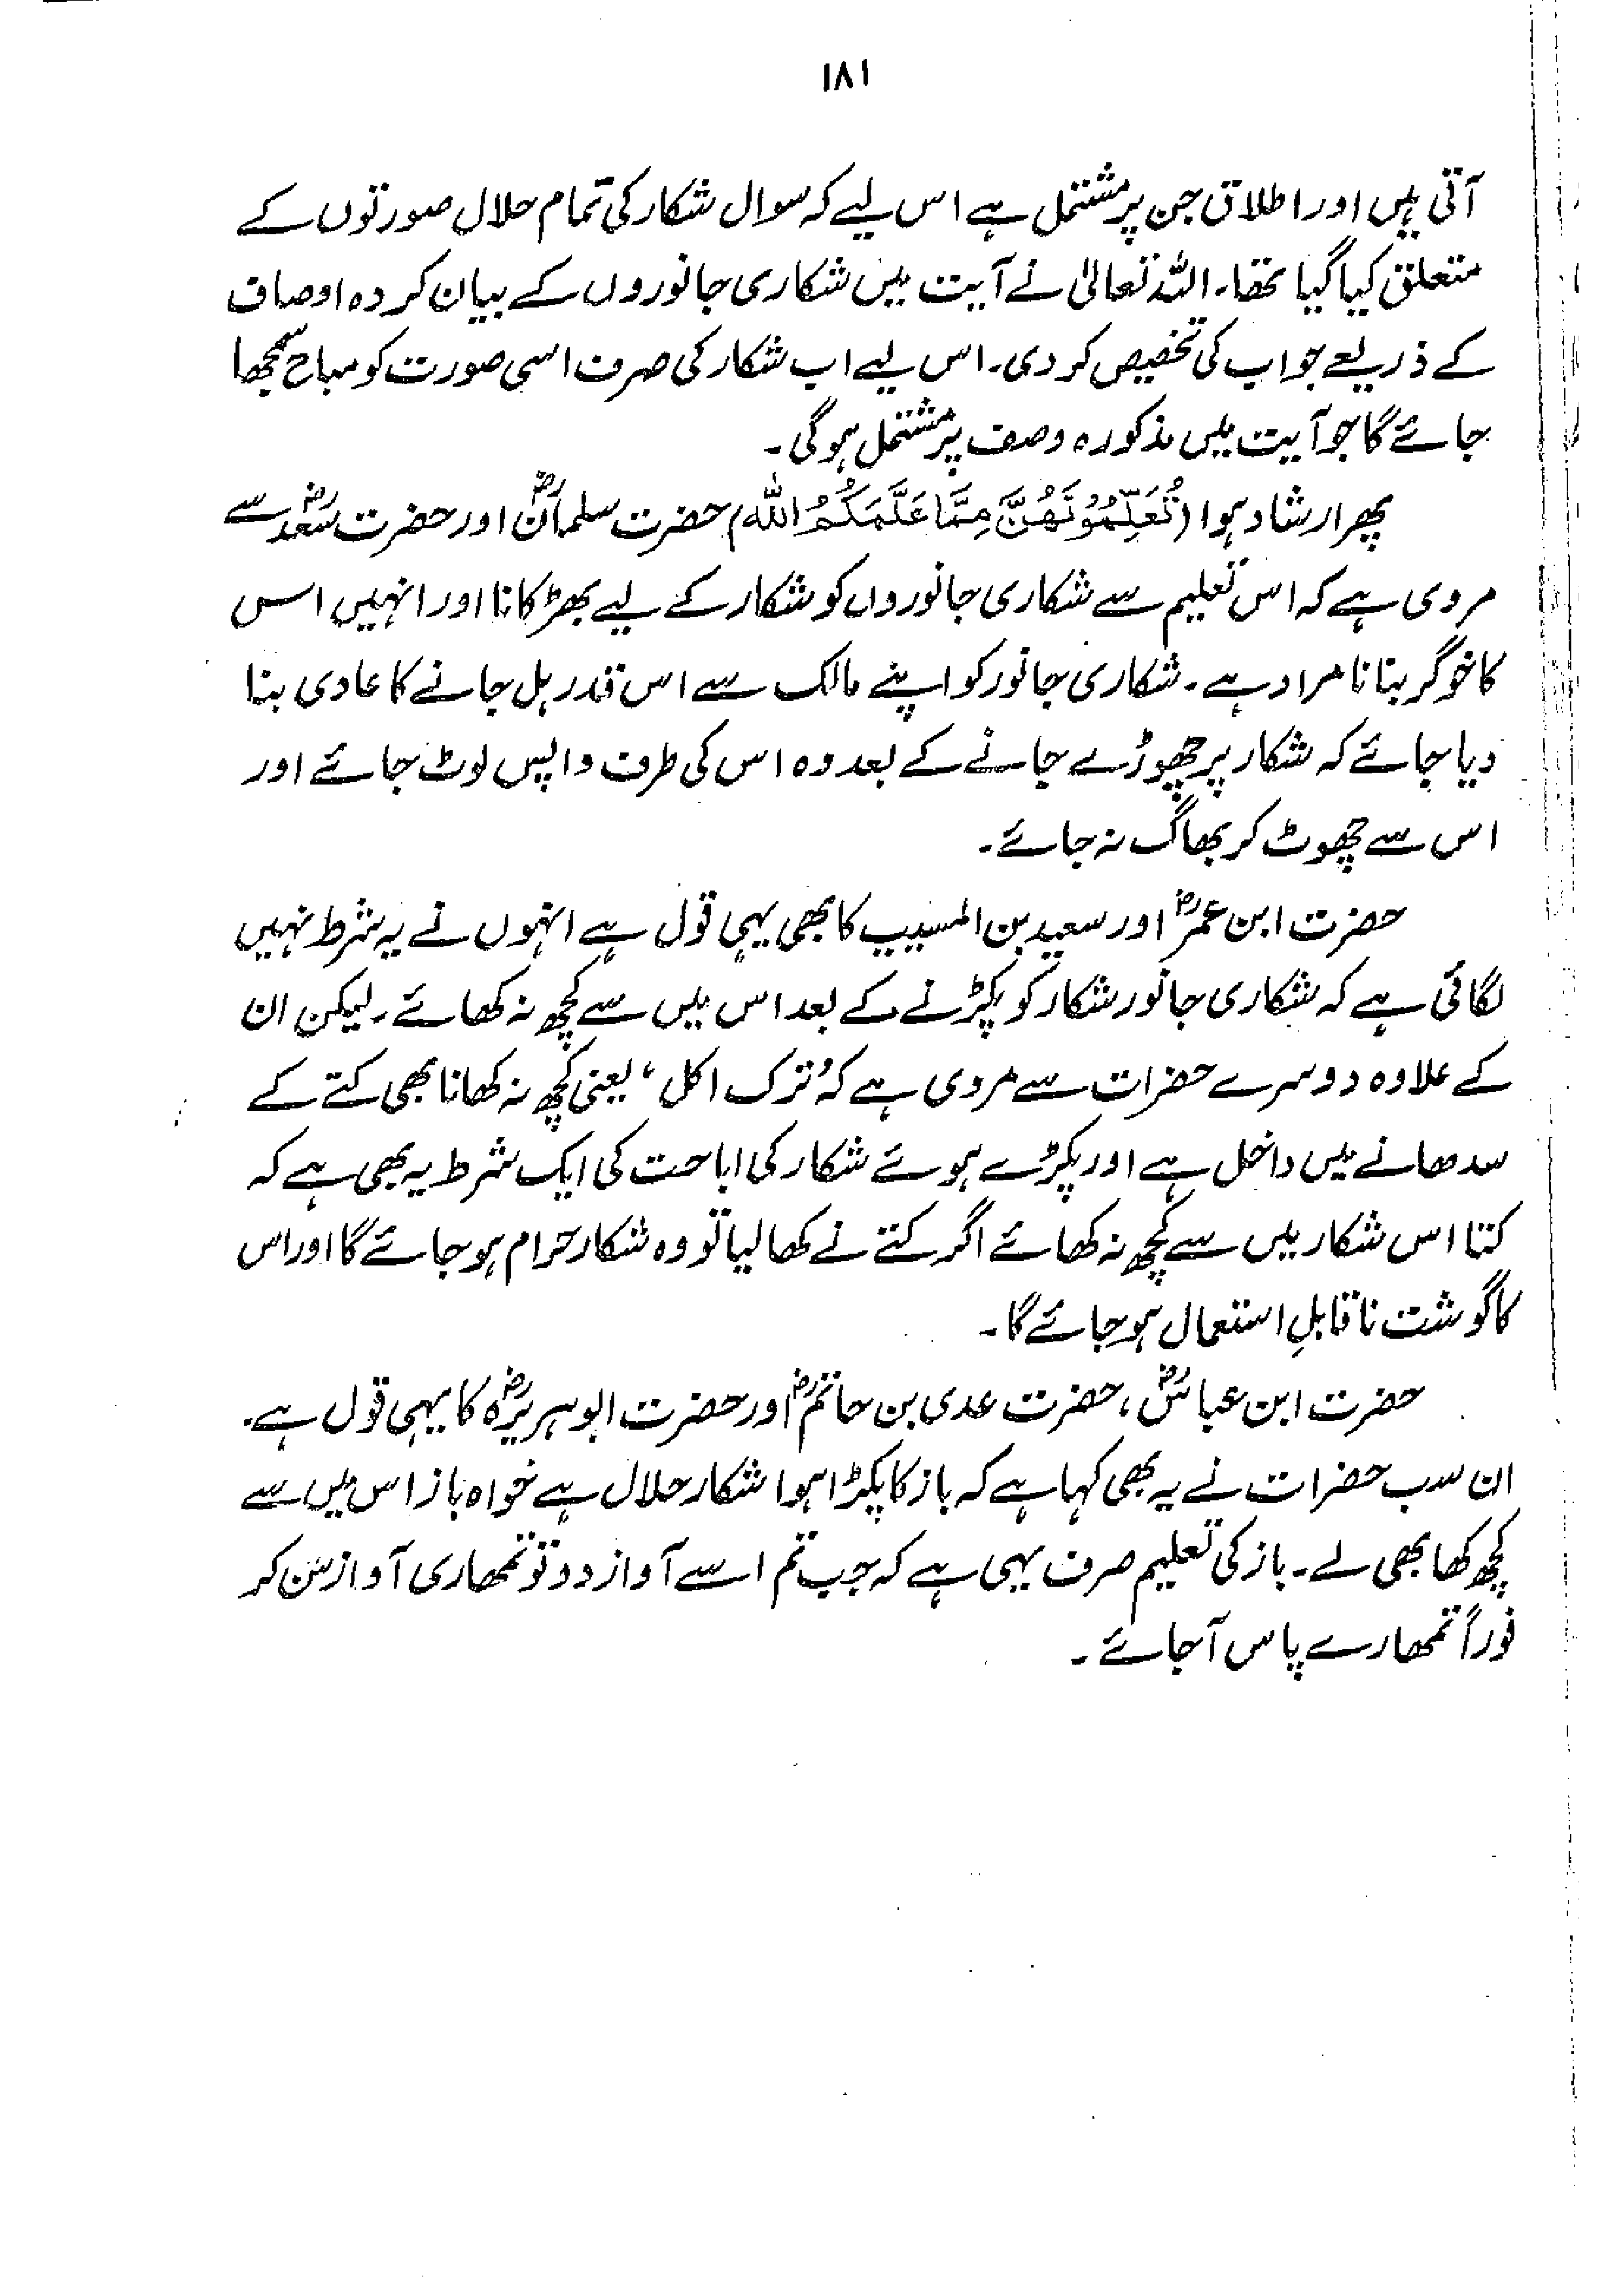 ۱۸۱
آتی ہیں اور اطلاق جن پر مشتمل ہے اس لیے کہ سوال شکار کی تمام حلال صورتوں کے
متعلق کیا گیا تھا۔ اللہ تعالیٰ نے آیت میں شکاری جانوروں کے بیان کردہ اوصاف
کے ذریعے جواب کی تخصیص کر دی۔ اس لیے اب شکار کی صرف اسی صورت کو مباح سمجھا
جائے گا جو آیت میں مذکورہ وصف پر مشتمل ہوگی۔
پھر ارشاد ہوا (تُعَلِّمُوْنَهُنَّ مِمَّا عَلَّمَكُمُ اللّٰهُ) حضرت سلمانؓ اور حضرت سعدؓ سے
مروی ہے کہ اس تعلیم سے شکاری جانوروں کو شکار کے لیے بھڑکانا اور انہیں اس
کا خوگر بنانا مراد ہے۔ شکاری جانور کو اپنے مالک سے اس قدر ہل جانے کا عادی بنا
دیا جائے کہ شکار پر چھوڑے جانے کے بعد وہ اس کی طرف واپس لوٹ جائے اور
اس سے چھوٹ کر بھاگ نہ جائے۔
حضرت ابن عمرؓ اور سعید بن المسیب کا بھی یہی قول ہے انہوں نے یہ شرط نہیں
لگائی ہے کہ شکاری جانور شکار کو پکڑنے کے بعد اس میں سے کچھ نہ کھائے۔ لیکن ان
کے علاوہ دوسرے حضرات سے مروی ہے کہ ’ترک اکل‘ یعنی کچھ نہ کھانا بھی کتے کے
سدھانے میں داخل ہے اور پکڑے ہوئے شکار کی اباحت کی ایک شرط یہ بھی ہے کہ
کتا اس شکار میں سے کچھ نہ کھائے اگر کتے نے کھا لیا تو وہ شکار حرام ہو جائے گا اور اس
کا گوشت ناقابلِ استعمال ہو جائے گا۔
حضرت ابن عباسؓ، حضرت عدی بن حاتمؓ اور حضرت ابوہریرہؓ کا یہی قول ہے۔
ان سب حضرات نے یہ بھی کہا ہے کہ باز کا پکڑا ہوا شکار حلال ہے خواہ باز اس میں سے
کچھ کھا بھی لے۔ باز کی تعلیم صرف یہی ہے کہ جب تم اسے آواز دو تو تمھاری آواز سن کر
فوراً تمھارے پاس آ جائے۔